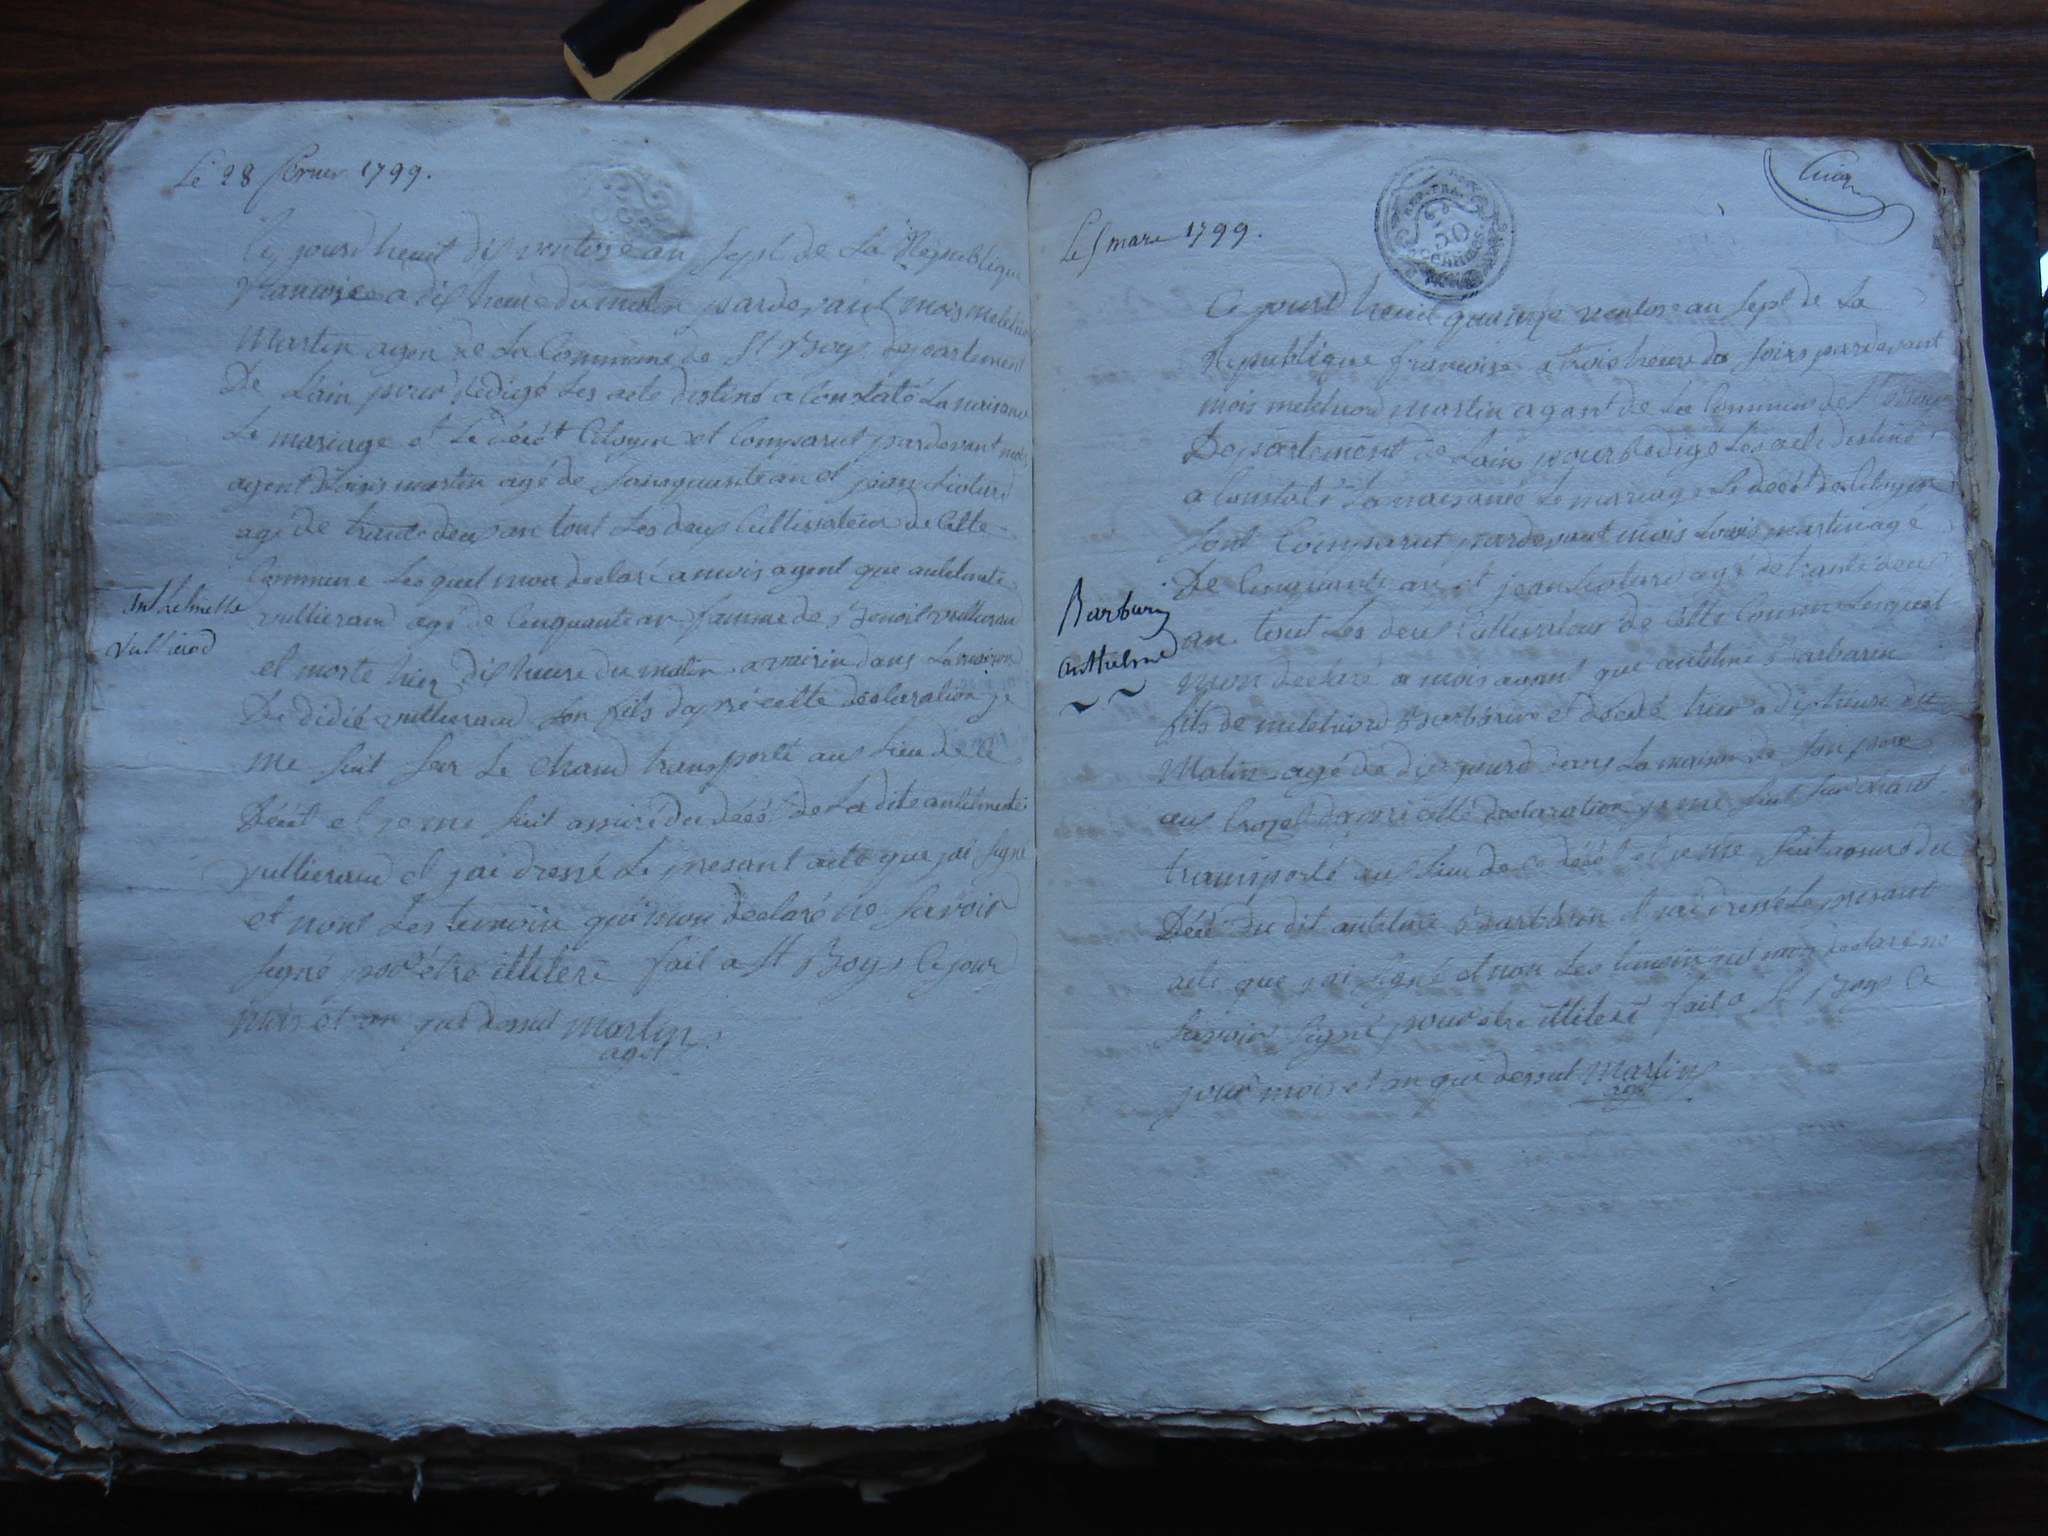 Le 28 fevrier 1799.
Ce jourd heuit dis ventose an sept de La Republique
francoise a dis heure du matin pardevant mois melchior
Martin agen de La Commune de St Boys departement
De Lain pour Redigé Les acte destiné a Constaté La naisance
Le mariage et Le décét Citoyen et Comparut pardevant mois
agent Louis martin agé de Sainquante an et jean
agé de trante deus an tout Les deus Cultivateur de Cette
Commune Lesquel mon declaré a mois agent que
Anthelmette
Vullierod
vullieraud agé de Cinquante an famme de Benoit vullieraud
et morte hier dis heure du matin a dans La maison
De didié vullieraud Son fils daprè cette declaration je
me suit sur Le Cham transporté aus Lieu de Ce
Décét et je me suit assuré du décé de La dite antelmette
vullieraud et jai dressé Le presant acte que jai Signé
et nont Les temoin qui mon declaré ne Savoir
signé pour être illiteré fait a St Boys Ce jour
mois et an que dessut Martin
agt
Cucq
REP. FRA.
50
CENTIMES
Le 5 mars 1799.
Ce jourd heuit quainze ventose an Sept de La
Republique francoise a trois heure du Soirs pardevant
mois melchiord martin agant de La Commune de St Bois
Departement de Lain pour Redigé Les acte destiné
a Constaté La naisance Le mariage Le décét de Citoyen
Sont Comparut pardevant mois Louis martin agé
De Cinquante an et jean agé de trante deus
Barbarin
anthelme
an tout Les deus Cultivateur de Cette Commune Lesquel
mon declaré a mois agant que antelme Barbarin
fils de melchiord Barbarin et décédé hier a dis heure du
Matin agé de dis jours dans La maison de Son pere
aus Crozet daprè cette declaration je me suit sur Chant
transporté aus Lieu de Ce décét et je me suit assuré du
Décé du dit antelme Barbarin et jai dressé Le presant
acte que jai Signé et non Les temoin qui mon declaré ne
Savoir Signé pour etre illiteré fait a St Boys Ce
jour mois et an que dessut Martin
agt